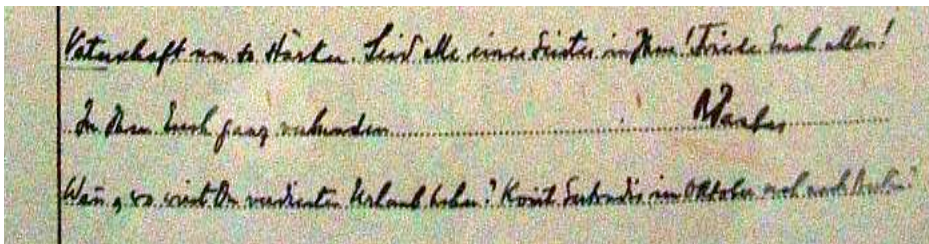 Vaterschaft um so stärker. Seid alle eines Geistes in Ihm! Friede Euch allen!
In Ihm Euch ganz verbunden
Wann u. wo wirst Du verdienten Urlaub haben? Kommt Gertrudis im Oktober noch nach